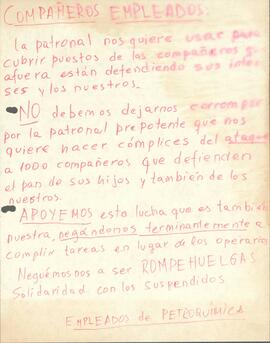 COMPAÑEROS EMPLEADOS:
La patronal nos quiere usar para
cubrir puestos de los compañeros q
afuera están defendiendo sus inte
ses y los nuestros.
NO debemos dejarnos corromper
por la patronal prepotente que nos
quiere hacer cómplices del ataque
a 1000 compañeros que defienden
el pan de sus hijos y también de los
nuestros.
APOYEMOS esta lucha que es también
nuestra, negándonos terminantemente a
cumplir tareas en lugar de los operarios
Neguémosnos a ser ROMPEHUELGAS
Solidaridad con los suspendidos
EMPLEADOS de PETROQUÍMICA